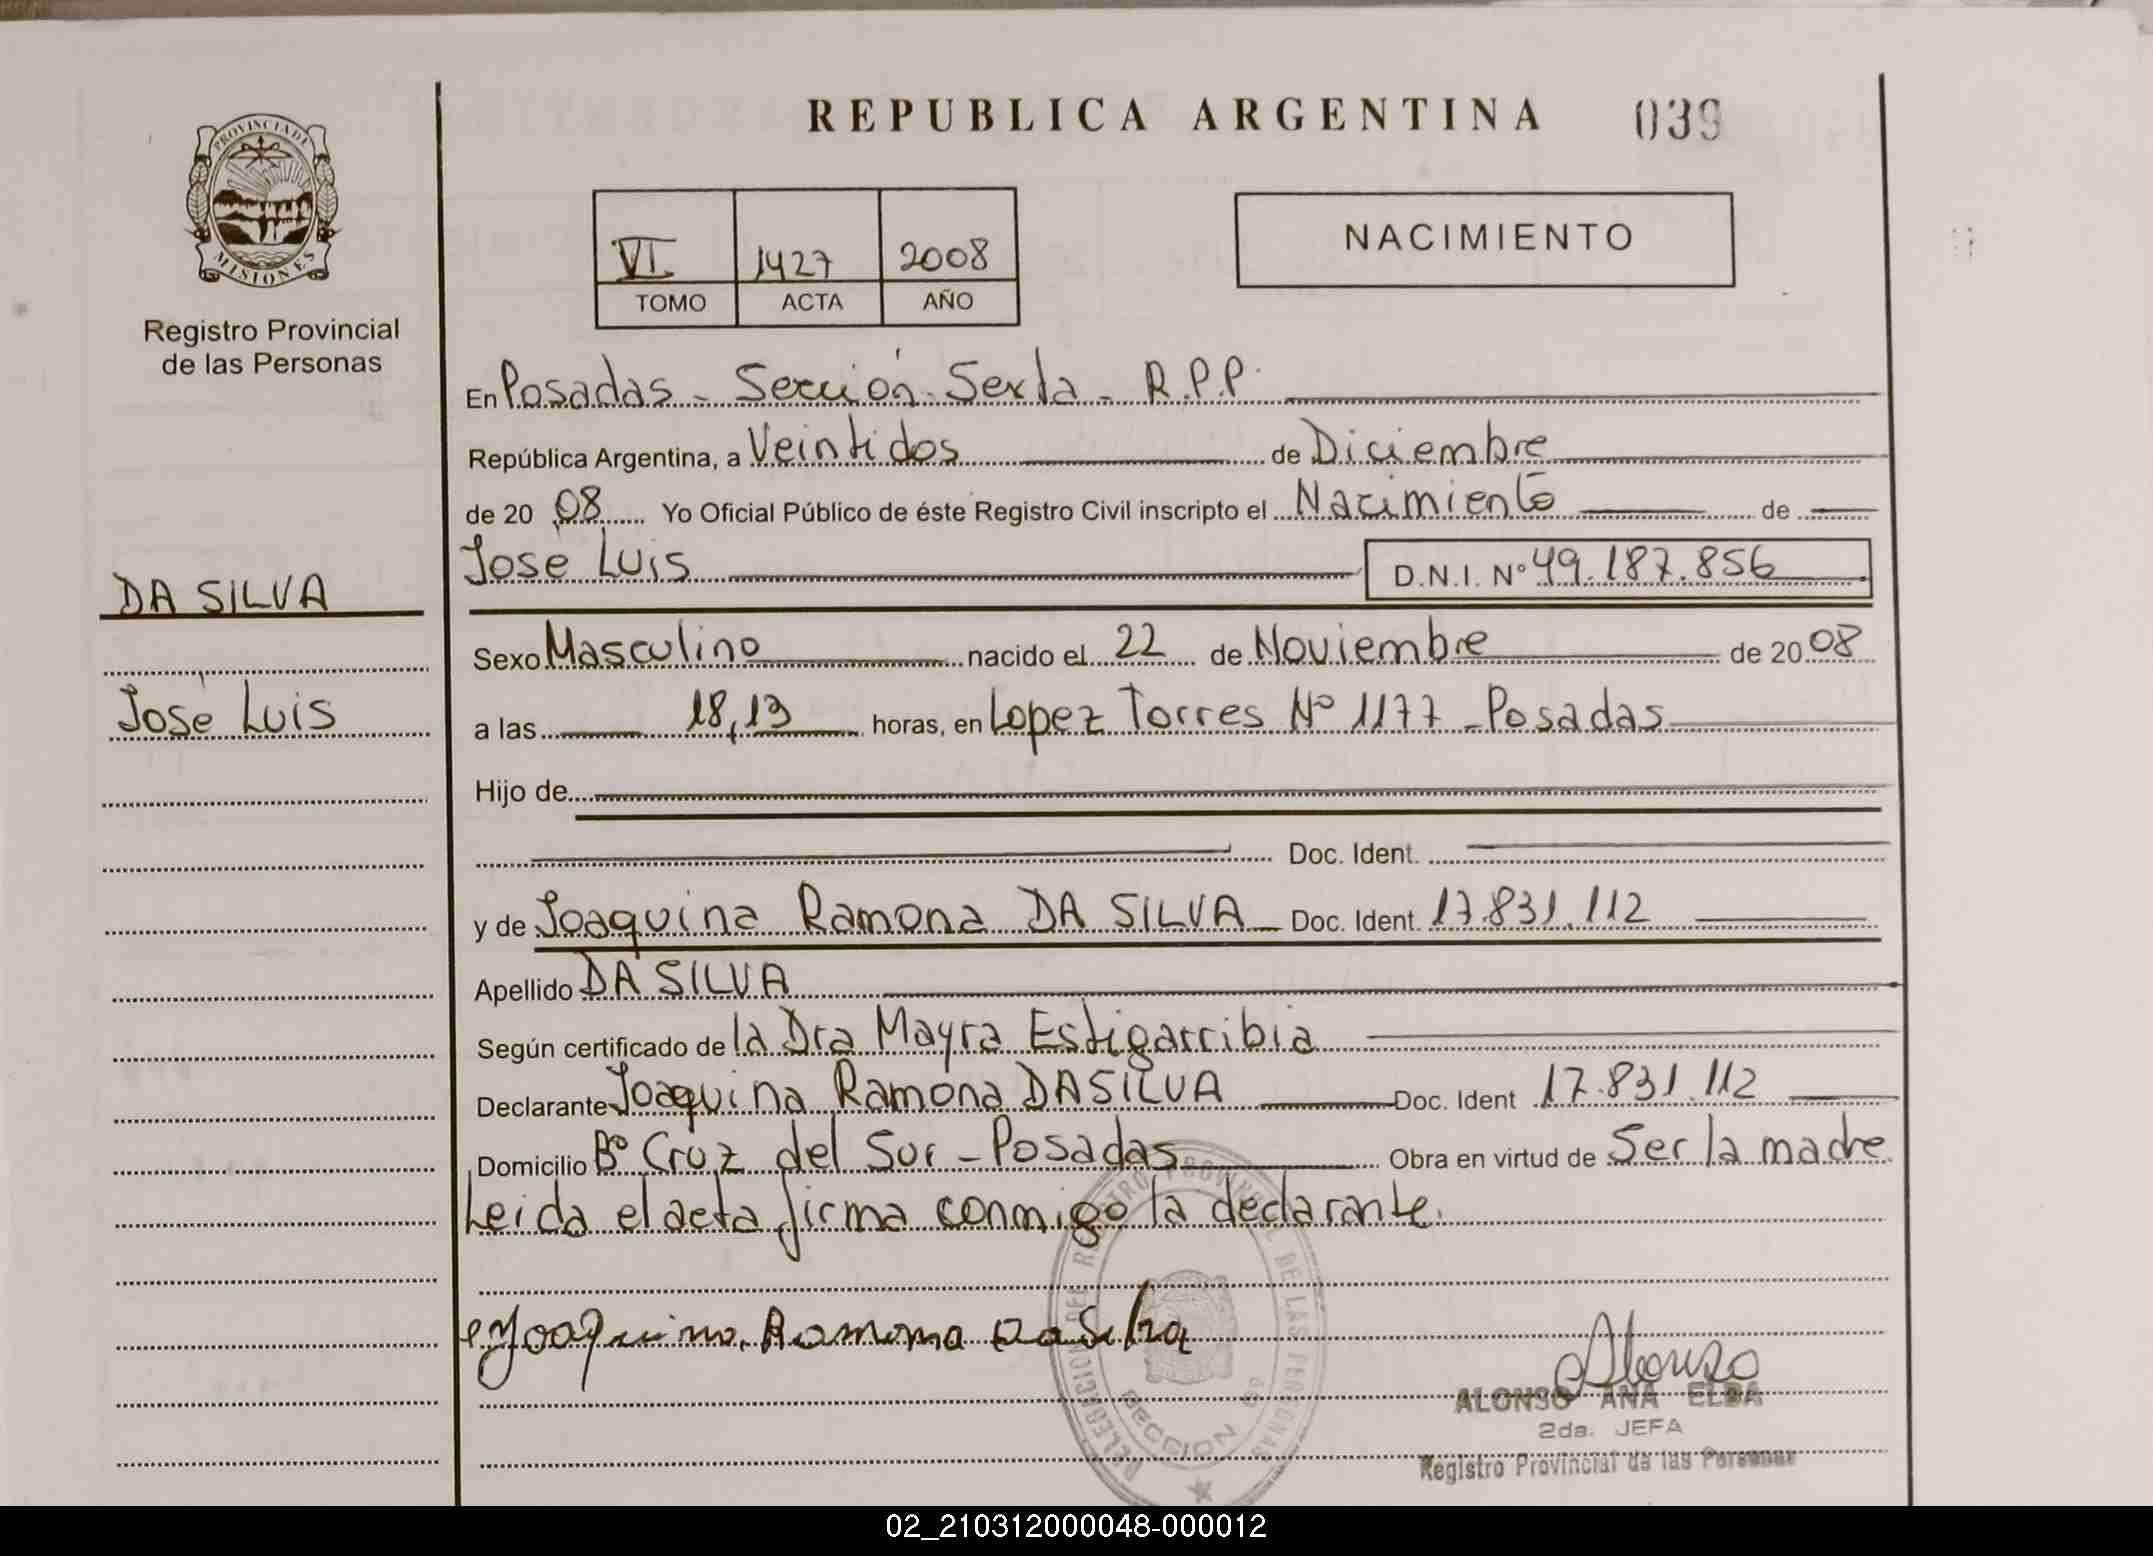 REPUBLICA ARGENTINA 039
PROVINCIA DE
MISIONES
Registro Provincial
de las Personas
VI 1427 2008
TOMO ACTA AÑO
NACIMIENTO
En Posadas - Sección - Sexta - R.P.P.
República Argentina, a Veintidos de Diciembre
de 20 08 Yo Oficial Público de éste Registro Civil inscripto el Nacimiento de
José Luis D.N.I. Nº 49.187.856
DA SILVA
Sexo Masculino nacido el 22 de Noviembre de 20 08
José Luis
a las 18,13 horas, en Lopez Torres Nº 1177 - Posadas
Hijo de
Doc. Ident.
y de Joaquina Ramona DA SILVA Doc. Ident. 17.831.112
Apellido DA SILVA
Según certificado de la Dra Mayra Estigarribia
Declarante Joaquina Ramona DA SILVA Doc. Ident 17.831.112
Domicilio Bº Cruz del Sur - Posadas Obra en virtud de Ser la madre
Leida el acta firma conmigo la declarante.
Joaquina Ramona Da Silva
DELEGACION DEL REGISTRO PROVINCIAL DE LAS PERSONAS
SECCION
Alonso
ALONSO ANA ELBA
2da. JEFA
Registro Provincial de las Personas
02_210312000048-000012